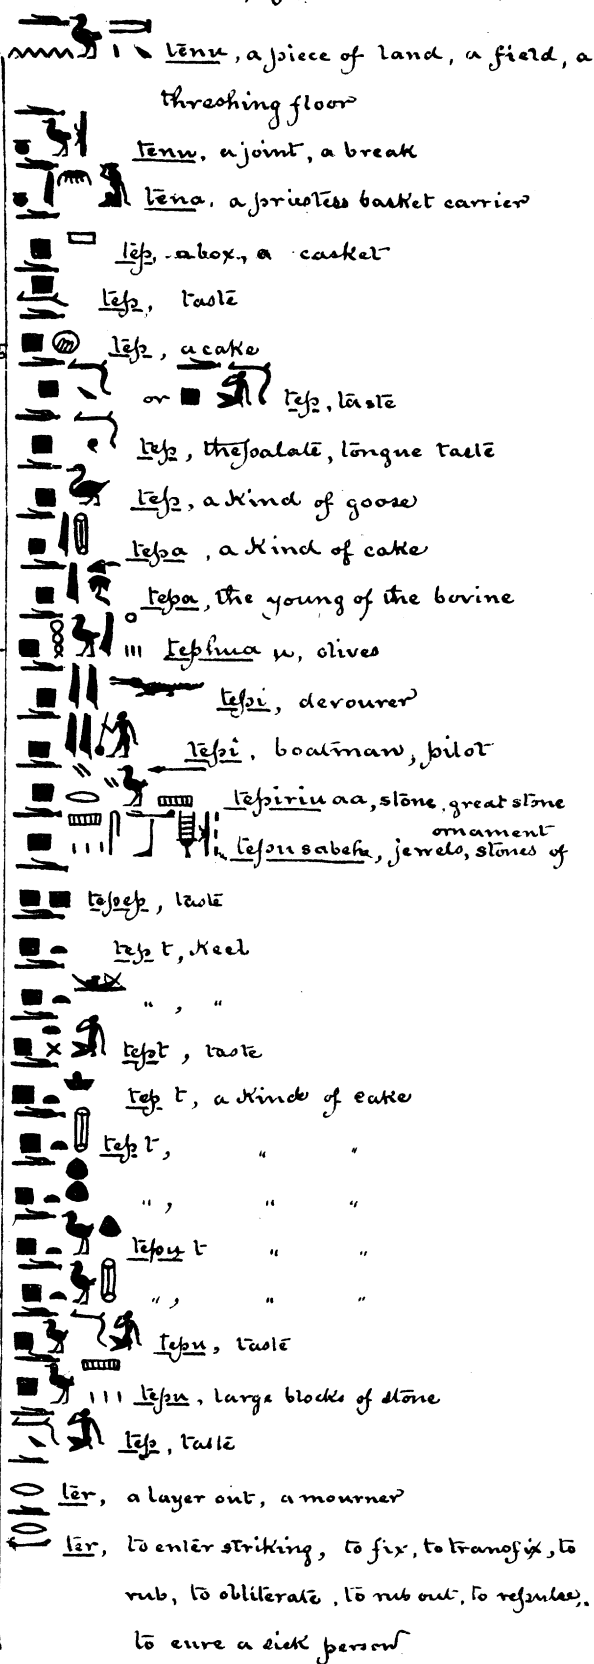 tenu, a piece of land, a field, a
threshing floor
tenu, a joint, a break
tena, a priestess basket carrier
tep, a box, a casket
tep, taste
tep, a cake
or tep, taste
tep, the palate, tongue taste
tep, a kind of goose
tepa, a kind of cake
tepa, the young of the bovine
tephua u, olives
tepi, devourer
tepi, boatman, pilot
tepiriu aa, stone, great stone
ornament
tepusabeha, jewels, stones of
tepep, taste
tep t, keel
" , "
tept, taste
tep t, a kind of cake
tep t, " "
" , " "
tepu t " "
" , " "
tepu, taste
tepu, large blocks of stone
tep, taste
ter, a layer out, a mourner
ter, to enter striking, to fix, to transfix, to
rub, to obliterate, to rub out, to repulse,
to cure a sick person